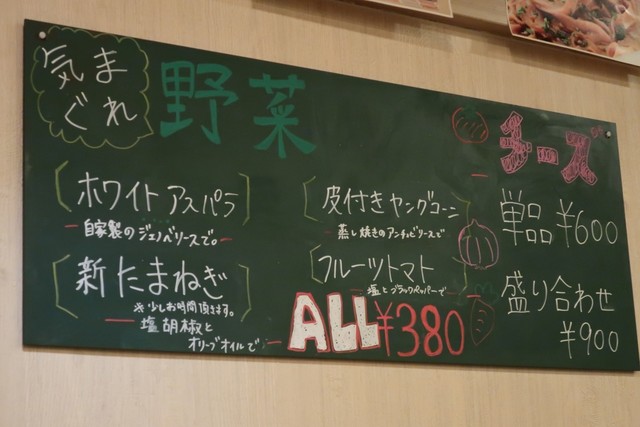 気まぐれ
野菜
ホワイトアスパラ
自家製のジェノベリースで。
新たまねぎ
※少しお時間頂きます。
塩胡椒と
オリーブオイルで
皮付きヤングコーン
蒸し焼きのアンチョビソースで
フルーツトマト
塩とブラックペッパーで
ALL ¥380
チーズ
単品 ¥600
盛り合わせ
¥900